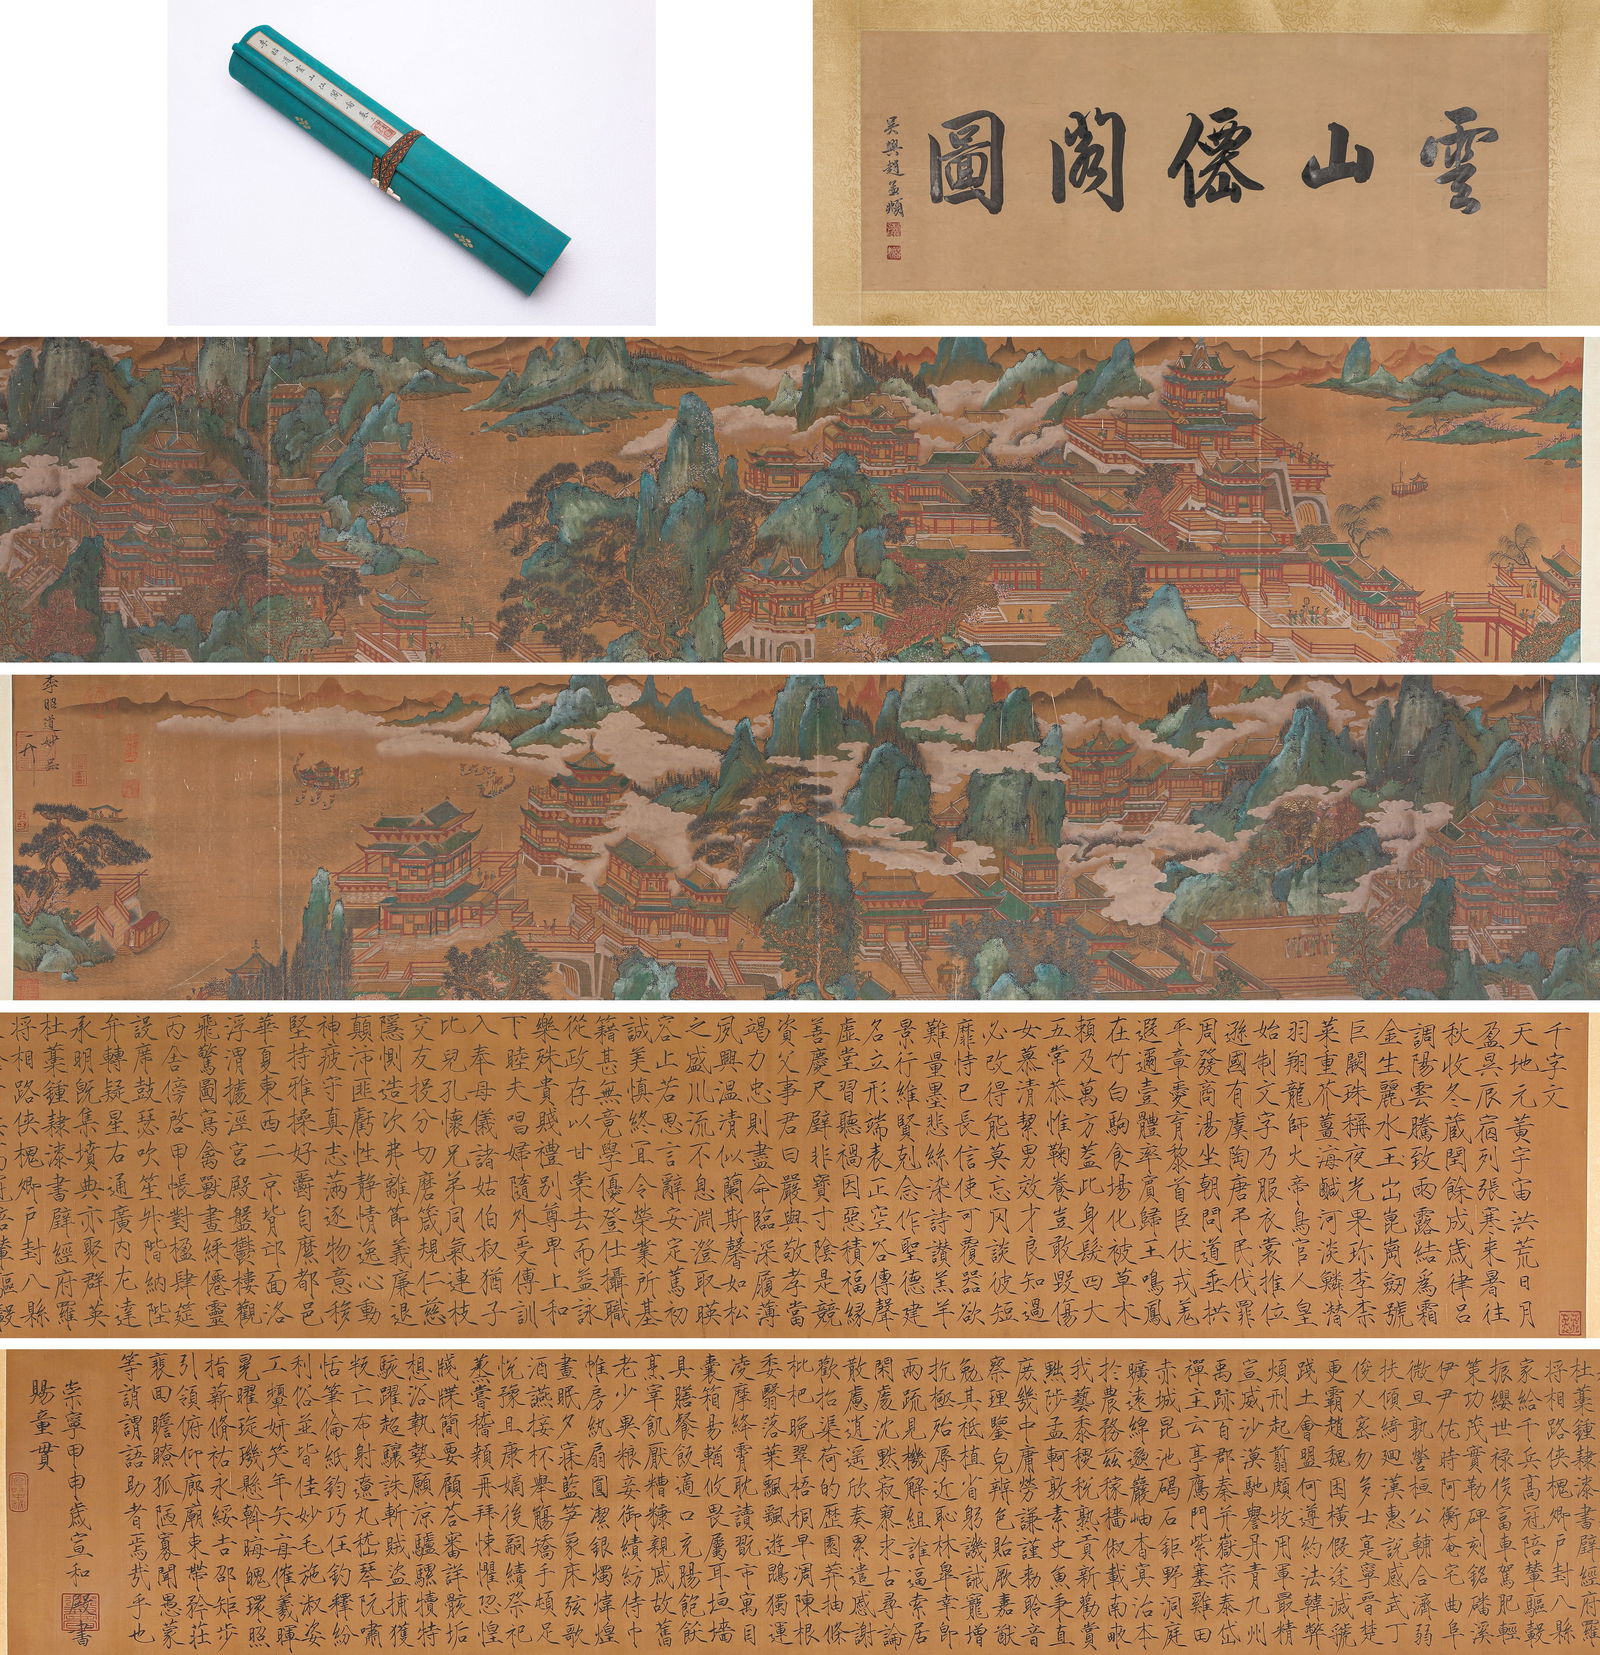 雲山僊閣圖
吳興趙孟頫
李昭道妙品
千字文
天地元黃宇宙洪荒日月
盈昃辰宿列張寒来暑往
秋收冬藏閏餘成歲律呂
調陽雲騰致雨露結為霜
金生麗水玉出崑崗劒號
巨闕珠稱夜光果珍李柰
菜重芥薑海鹹河淡鱗潛
羽翔龍師火帝鳥官人皇
始制文字乃服衣裳推位
遜國有虞陶唐弔民伐罪
周發商湯坐朝問道垂拱
平章愛育黎首臣伏戎羌
遐邇壹體率賓歸王鳴鳳
在竹白駒食場化被草木
賴及萬方蓋此身髮四大
五常恭惟鞠養豈敢毀傷
女慕清潔男效才良知過
必改得能莫忘罔談彼短
靡恃己長信使可覆器欲
難量墨悲絲染詩讚羔羊
景行維賢剋念作聖德建
名立形端表正空谷傳聲
虛堂習聽禍因惡積福緣
善慶尺璧非寶寸陰是競
資父事君曰嚴與敬孝當
竭力忠則盡命臨深履薄
夙興溫清似蘭斯馨如松
之盛川流不息淵澄取暎
容止若思言辭安定篤初
誠美慎終宜令榮業所基
籍甚無竟學優登仕攝職
從政存以甘棠去而益詠
樂殊貴賤禮別尊卑上和
下睦夫唱婦隨外受傅訓
入奉母儀諸姑伯叔猶子
比兒孔懷兄弟同氣連枝
交友投分切磨箴規仁慈
隱惻造次弗離節義廉退
顛沛匪虧性静情逸心動
神疲守真志滿逐物意移
堅持雅操好爵自縻都邑
華夏東西二京背邙面洛
浮渭據涇宮殿盤鬱樓觀
飛驚圖寫禽獸畫綵僊靈
丙舍傍啓甲帳對楹肆筵
設席鼓瑟吹笙升階納陛
弁轉疑星右通廣内左達
承明既集墳典亦聚群英
杜藁鍾隸漆書壁經府羅
將相路俠槐卿戶封八縣
杜藁鍾隸漆書壁經府羅
將相路俠槐卿戶封八縣
家給千兵高冠陪輦驅轂
振纓世禄侈富車駕肥輕
策功茂實勒碑刻銘磻溪
伊尹佐時阿衡奄宅曲阜
微旦孰營桓公輔合濟弱
扶傾綺迴漢惠說感武丁
俊乂密勿多士寔寧晉楚
更霸趙魏困橫假途滅虢
踐土會盟何遵約法韓弊
煩刑起翦頗牧用軍最精
宣威沙漠馳譽丹青九州
禹跡百郡秦并嶽宗泰岱
禪主云亭鴈門紫塞雞田
赤城昆池碣石鉅野洞庭
曠遠綿邈巖岫杳冥治本
於農務茲稼穡俶載南畝
我藝黍稷稅熟貢新勸賞
黜陟孟軻敦素史魚秉直
庶幾中庸勞謙謹勑聆音
察理鑒皃辨色貽厥嘉猷
勉其祗植省躬譏誡寵增
抗極殆辱近恥林皋幸即
兩疏見機解組誰逼索居
閑處沈默寂寥求古尋論
散慮逍遙欣奏累遣慼謝
歡招渠荷的歷園莽抽條
枇杷晚翠梧桐早凋陳根
委翳落葉飄颻遊鵾獨運
凌摩絳霄耽讀翫市寓目
囊箱易輶攸畏屬耳垣墻
具膳餐飯適口充腸飽飫
烹宰飢厭糟糠親戚故舊
老少異粮妾御績紡侍巾
帷房紈扇圓潔銀燭煒煌
晝眠夕寐藍笋象床弦歌
酒讌接杯舉觴矯手頓足
悅豫且康嫡後嗣續祭祀
蒸嘗稽顙再拜悚懼恐惶
牋牒簡要顧答審詳骸垢
想浴執熱願涼驢騾犢特
駭躍超驤誅斬賊盜捕獲
叛亡布射遼丸嵇琴阮嘯
恬筆倫紙鈞巧任釣釋紛
利俗並皆佳妙毛施淑姿
工顰妍笑年矢每催羲暉
晃曜璇璣懸斡晦魄環照
指薪脩祜永綏吉邵矩步
引領俯仰廊廟束帶矜莊
裵回瞻瞭孤陋寡聞愚蒙
等誚謂語助者焉哉乎也
崇寧甲申歲宣和殿書
賜童貫